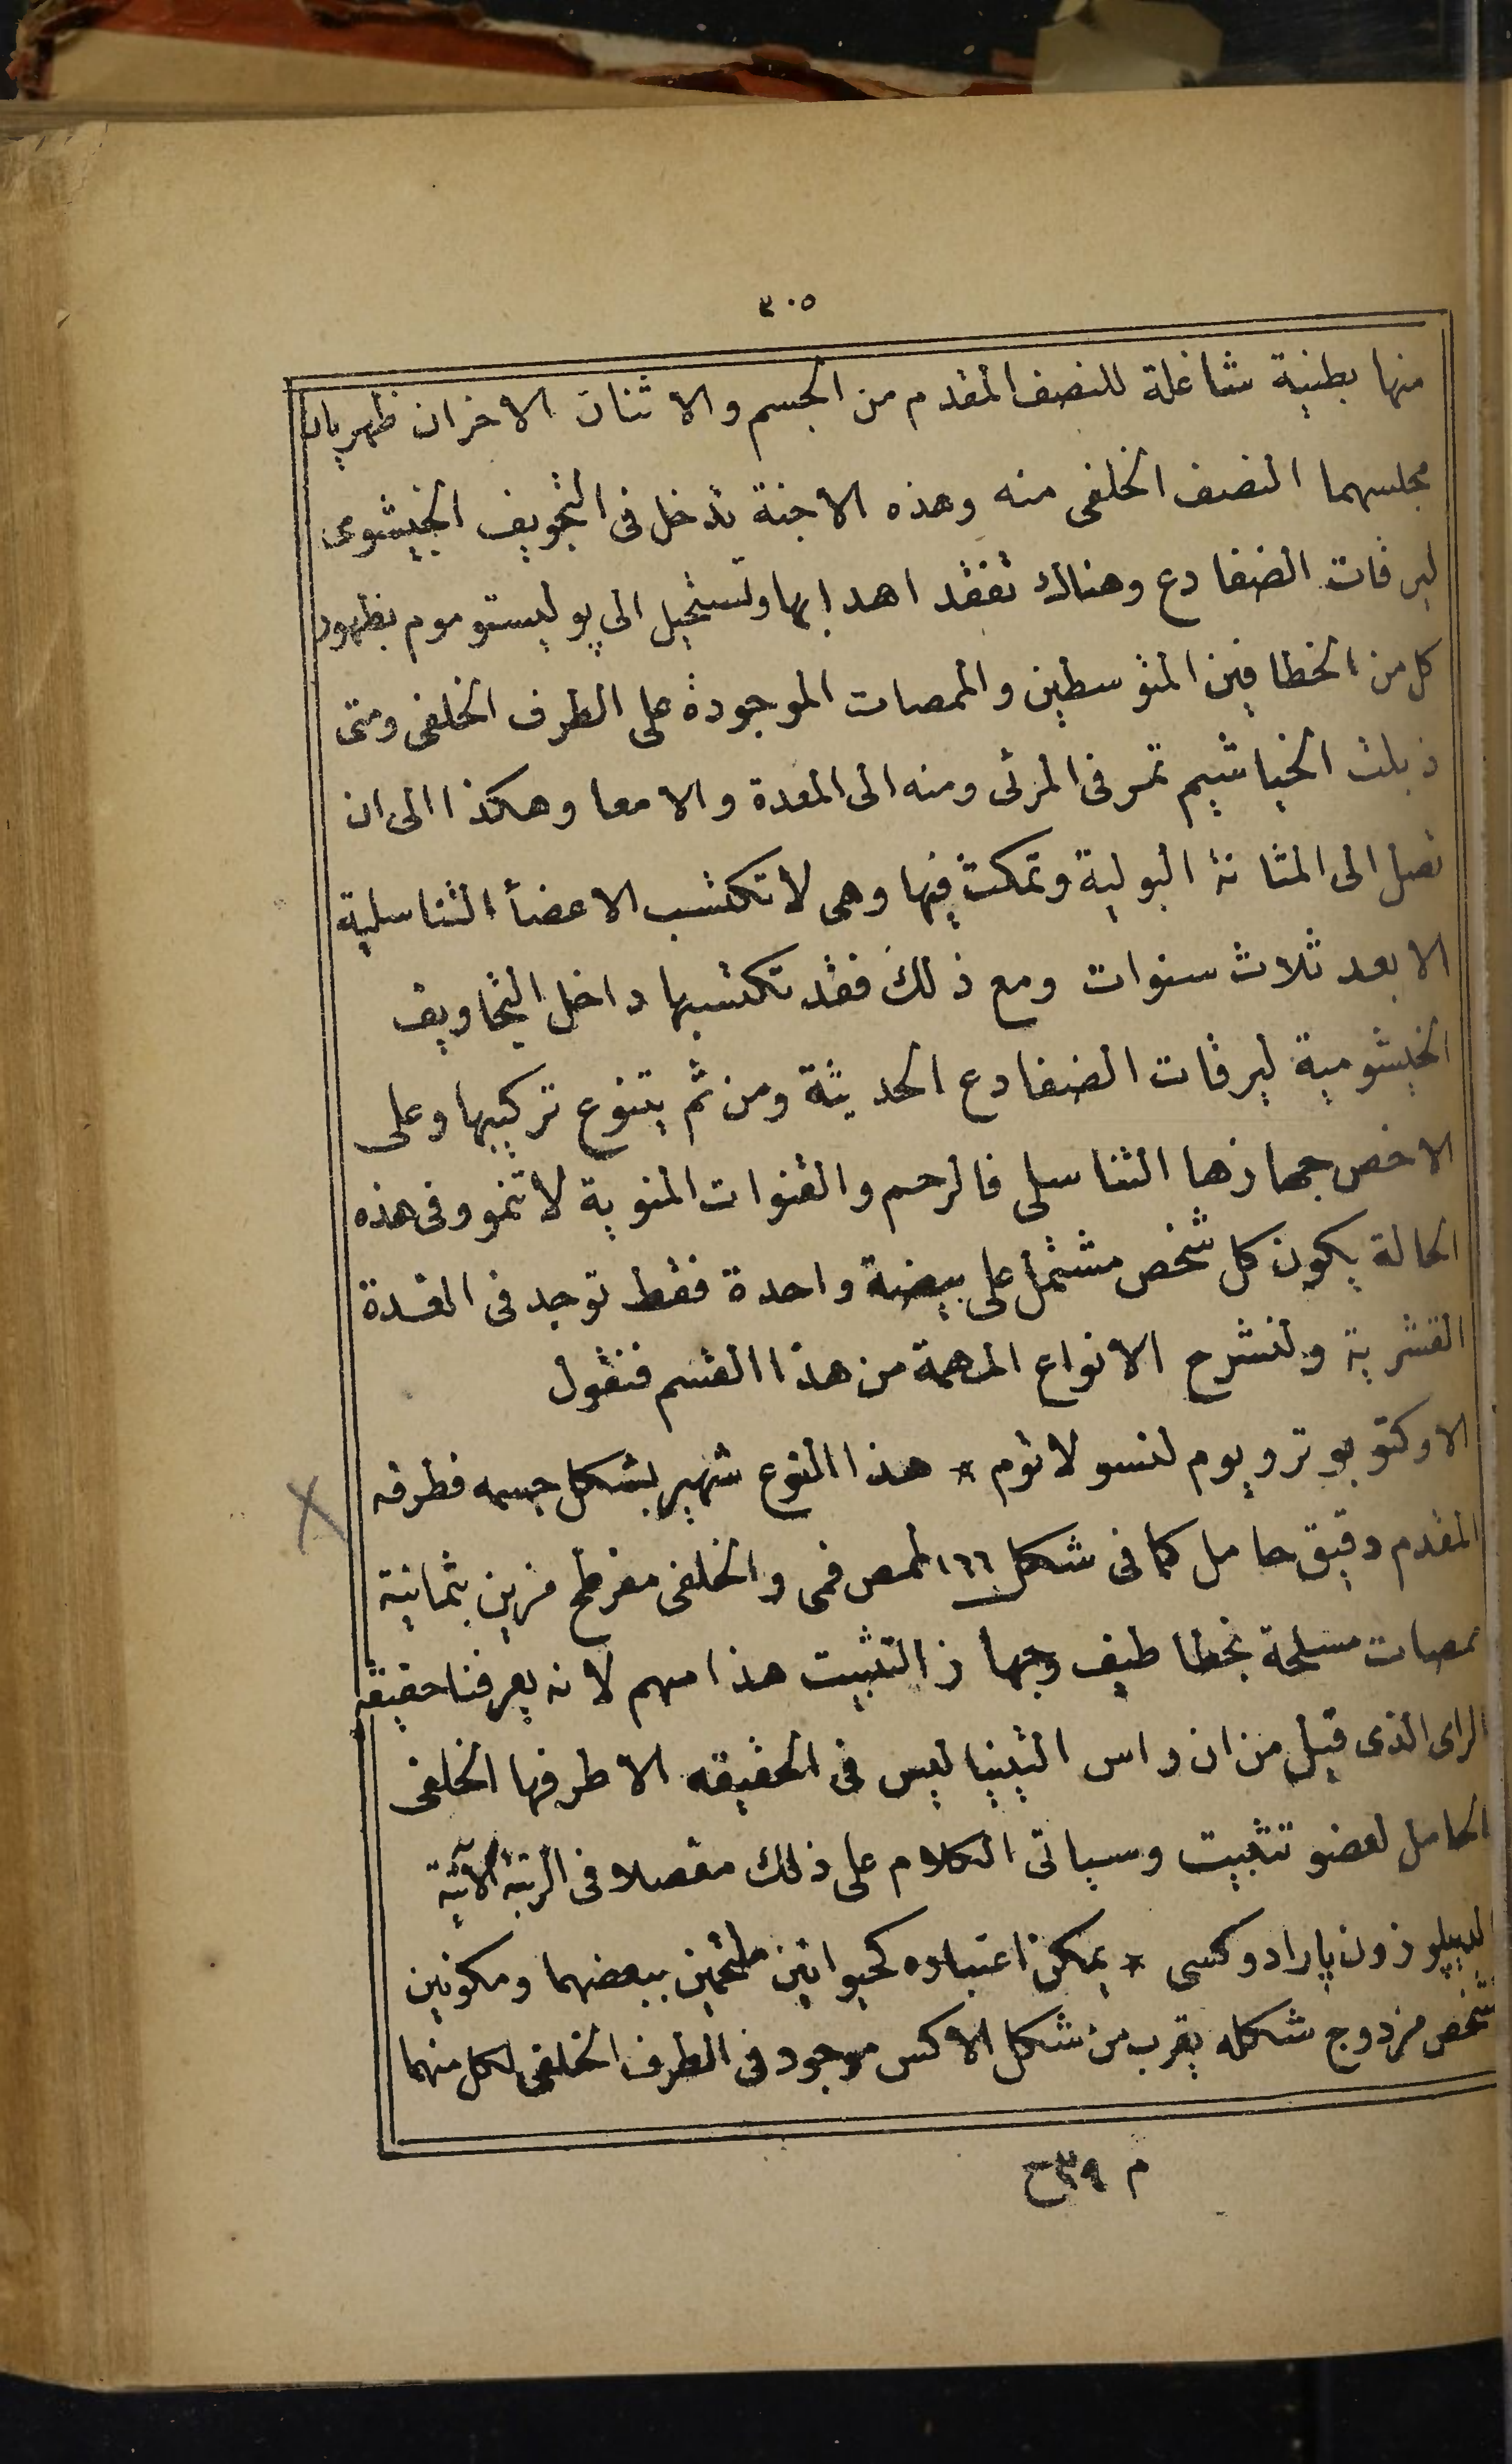 ٣٠٥
منها بطنية شاغلة للنصف المقدم من الجسم والاثنان الاخران ظهريان
مجلسهما النصف الخلفى منه وهذه الاجنة تدخل فى التجويف الخيشومى
ليرقات الضفادع وهناك تفقد اهدابها وتستحيل الى پوليستوموم بظهور
كل من الخطافين المتوسطين والممصات الموجودة على الطرف الخلفى ومتى
ذبلت الخياشيم تمر فى المرئى ومنه الى المعدة والامعا وهكذا الى ان
تصل الى المثانة البولية وتمكث فيها وهى لا تكتسب الاعضأ التناسلية
الا بعد ثلاث سنوات ومع ذلك فقد تكتسبها داخل التجاويف
الخيشومية ليرقات الضفادع الحديثة ومن ثم يتنوع تركيبها وعلى
الاخص جهازها التناسلى فالرحم والقنوات المنوية لا تنمو وفى هذه
الحالة يكون كل شخص مشتمل على بيضة واحدة فقط توجد فى الغدة
القشرية ولنشرح الانواع المهمة من هذا القسم فنقول
الاوكتوبوتروپوم لنسولاتوم * هذا النوع شهير بشكل جسمه فطرفه
المقدم دقيق حامل كما فى شكل ١٦٦ لممص فمى والخلفى مفرطح مزين بثمانية
ممصات مسلحة بخطاطيف وجهاز التثبيت هذا مهم لانه يعرفنا حقيقة
الراى الذى قيل من ان راس التينيا ليس فى الحقيقه الا طرفها الخلفى
الحامل لعضو تثبيت وسياتى الكلام على ذلك مفصلا فى الرتبة الآتية
الديپلوزون پارادوكسى * يمكن اعتباره كحيوانين ملتحمين ببعضهما ومكونين
لشخص مزدوج شكله يقرب من شكل الاكس موجود فى الطرف الخلفى لكل منهما
م ٣٩ ح